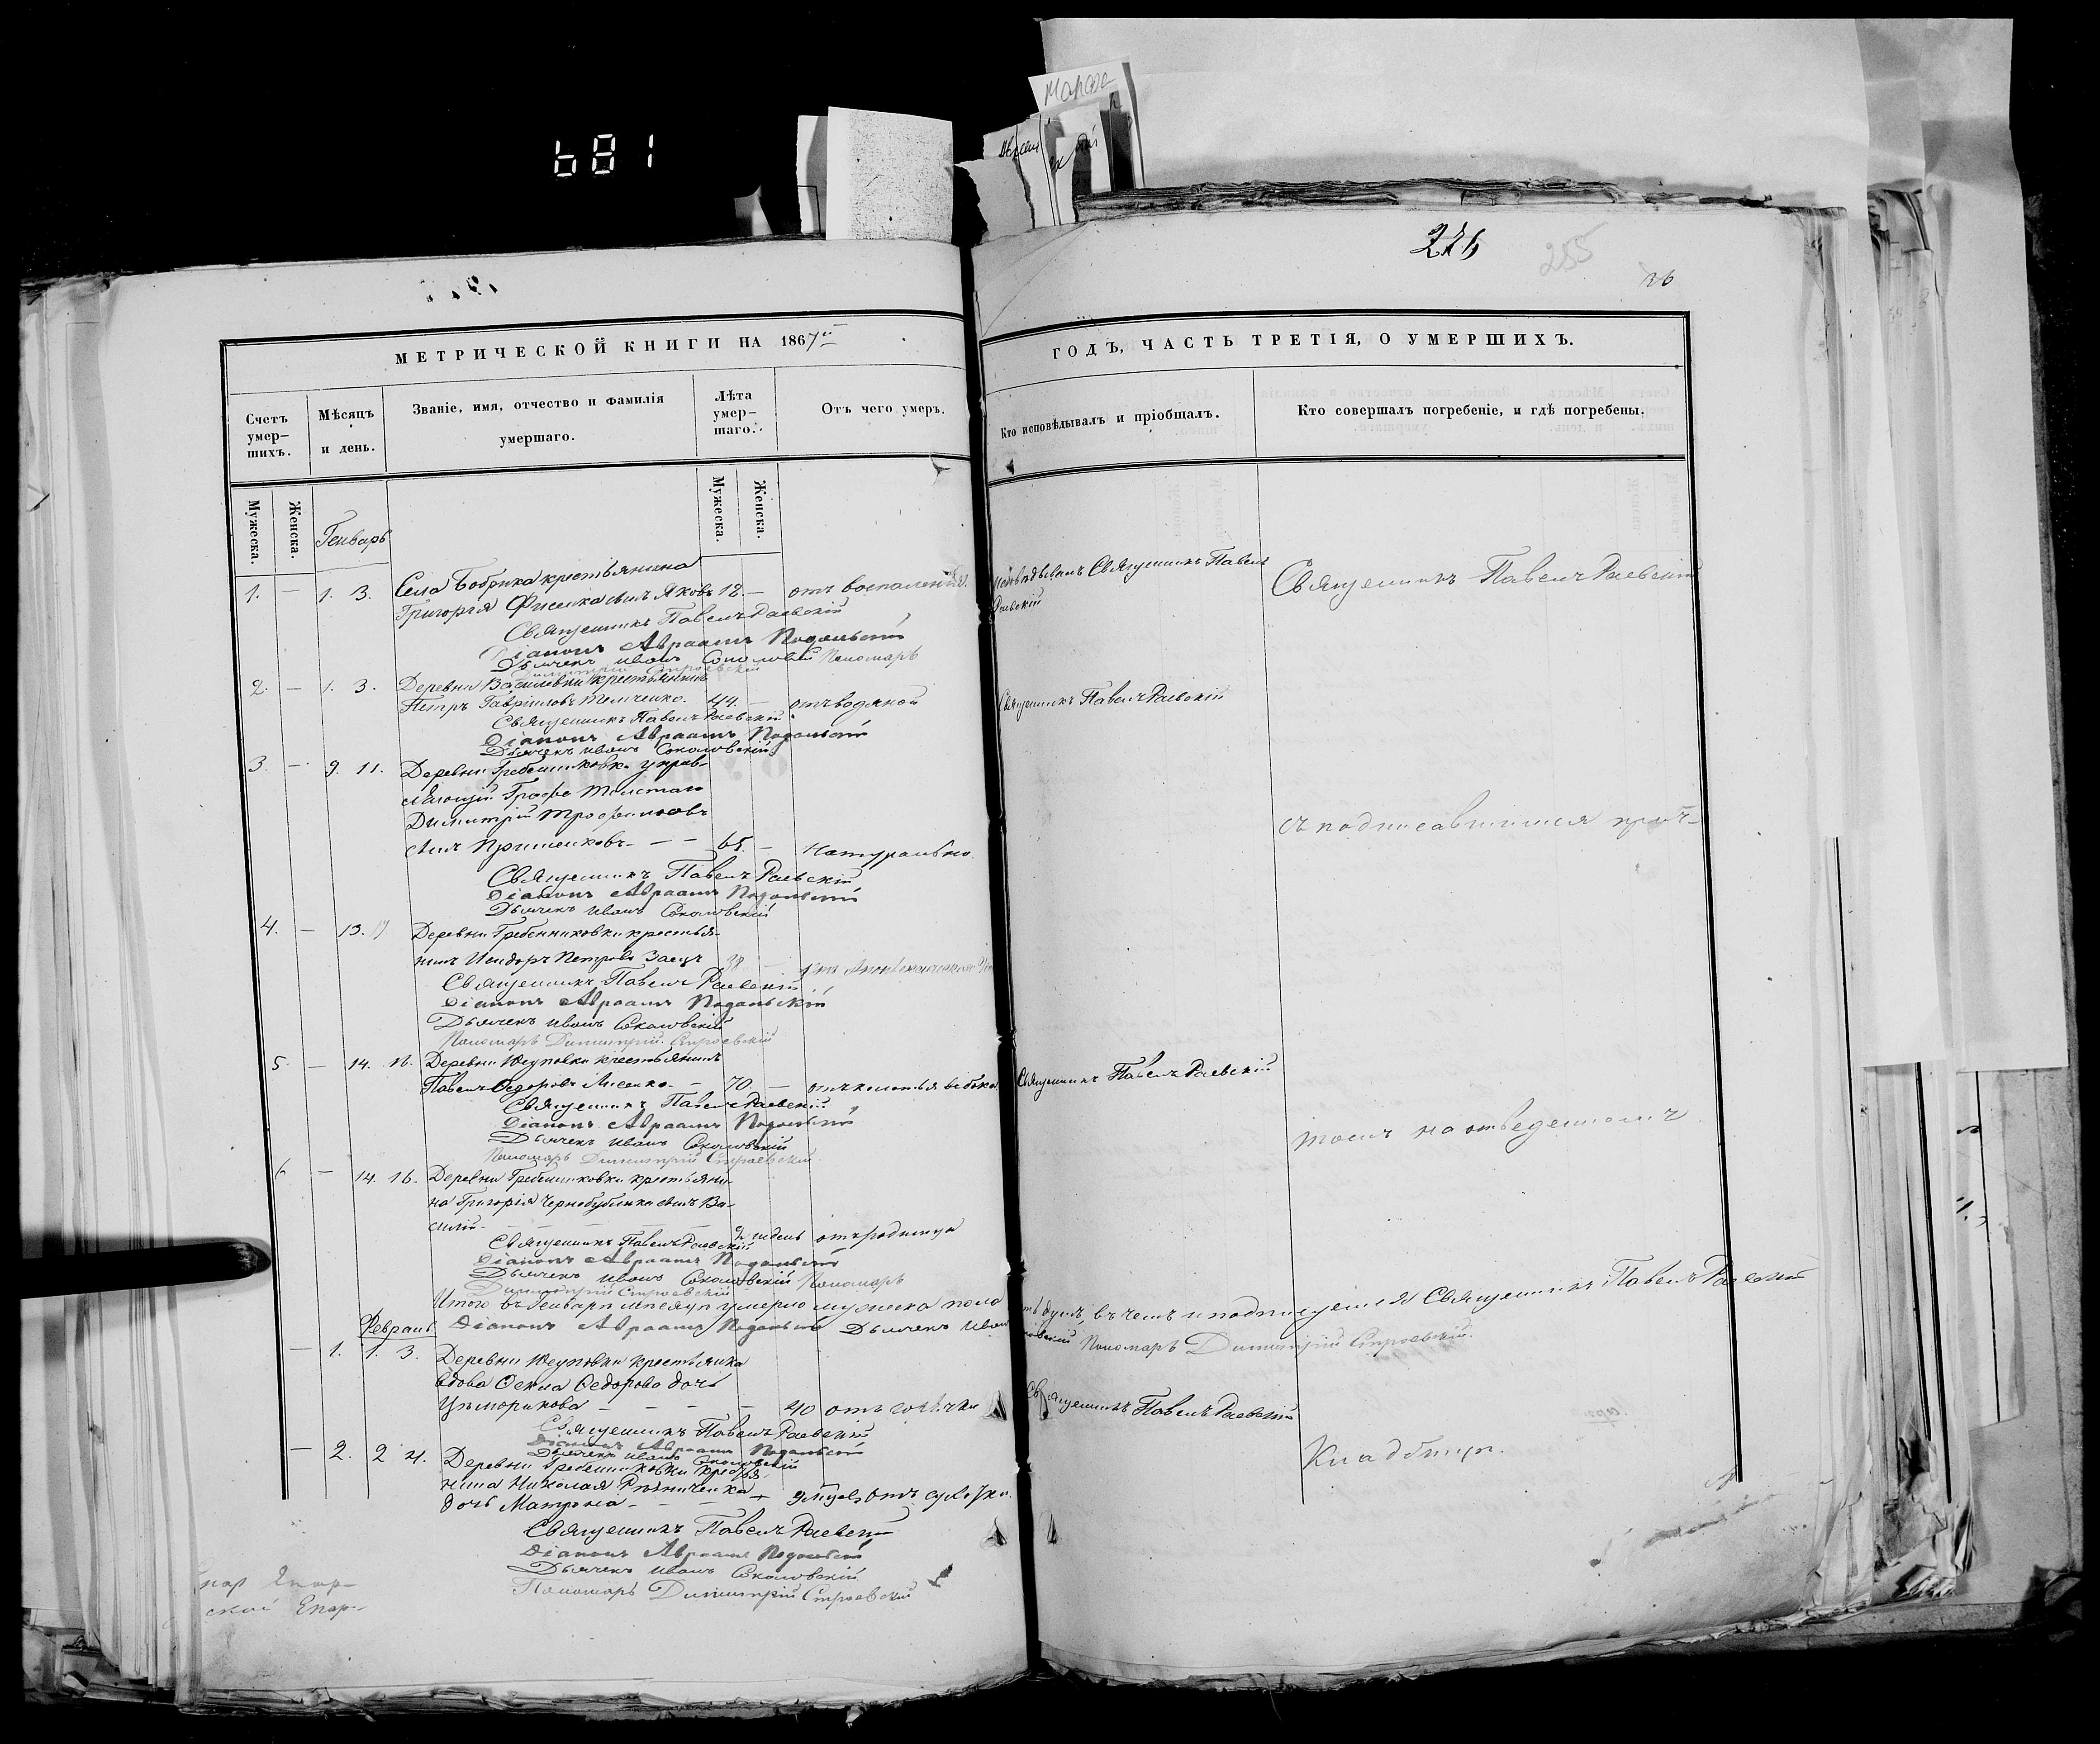 марта
681
226
255
26
МЕТРИЧЕСКОЙ КНИГИ НА 1867й
ГОДЪ, ЧАСТЬ ТРЕТІЯ, О УМЕРШИХЪ.
Счетъ умер-
шихъ.
Мѣсяцъ
и день.
Званіе, имя, отчество и фамилія
умершаго.
Лѣта
умер-
шаго.
Отъ чего умеръ.
Кто исповѣдывалъ и пріобщалъ.
Кто совершалъ погребеніе, и гдѣ погребены.
Мужеска.
Женска.
Мужеска.
Женска.
Генварь
1. — 1. 3. Села Бобрика крестьянина
Григорія Фисенка сынъ Яковъ 12. — отъ воспаленія
Исповѣдывалъ Священникъ Павелъ
Раевскій
Священникъ Павелъ Раевскій
Священникъ Павелъ Раевскій
Діаконъ Авраамъ Подольскій
Дьячекъ Иванъ Соколовскій Пономарь
Димитрій Строевскій
2. — 1. 3. Деревни Василевки крестьянинъ
Петръ Гавриловъ Темченко. 44. — отъ водяной
Священникъ Павелъ Раевскій
Священникъ Павелъ Раевскій
Діаконъ Авраамъ Подольскій
Дьячекъ Иванъ Соколовскій
3. — 9. 11. Деревни Гребенниковки управ-
ляющій Графа Толстаго
Димитрій Трофимовъ
сынъ — — 65. — Натурально
съ подписавшимся прич-
Священникъ Павелъ Раевскій
Діаконъ Авраамъ Подольскій
Дьячекъ Иванъ Соколовскій
4. — 13. Деревни Гребенниковки крестья-
нинъ Исидоръ Петровъ Заецъ 38 —
Священникъ Павелъ Раевскій
Діаконъ Авраамъ Подольскій
Дьячекъ Иванъ Соколовскій
Пономарь Димитрій Строевскій
5. — 14. 16. Деревни Юсуповки крестьянинъ
Павелъ Федоровъ Лисенко. — 70. — отъ колотья въ бока
Священникъ Павелъ Раевскій
Священникъ Павелъ Раевскій
Діаконъ Авраамъ Подольскій
Дьячекъ Иванъ Соколовскій
Пономарь Димитрій Строевскій
томъ на отведенномъ
6 — 14. 16. Деревни Гребенниковки крестьяни-
на Григорія Чернобубленка сынъ Ва-
силій — отъ родимца
Священникъ Павелъ Раевскій
Діаконъ Авраамъ Подольскій
Дьячекъ Иванъ Соколовскій Пономарь
Димитрій Строевскій
Итого въ Генварѣ мѣсяцѣ умерло мужеска пола
душъ, въ чемъ и подписуемся Священникъ Павелъ Раевскій
Діаконъ Авраамъ Подольскій Дьячекъ Иванъ
Пономарь Димитрій Строевскій
Февраль
— 1. 1. 3. Деревни Юсуповки крестьянка
вдова Фекла Федорова дочь
Цыморикова — — — 40 отъ горячки
Священникъ Павелъ Раевскій
Священникъ Павелъ Раевскій
Діаконъ Авраамъ Подольскій
Дьячекъ Иванъ Соколовскій
— 2. 2 4. Деревни Гребенниковки крестья-
нина Николая Рѣзниченка
дочь Матрона — отъ сухотки
Кладбищѣ.
Священникъ Павелъ Раевскій
Діаконъ Авраамъ Подольскій
Дьячекъ Иванъ Соколовскій
Пономарь Димитрій Строевскій